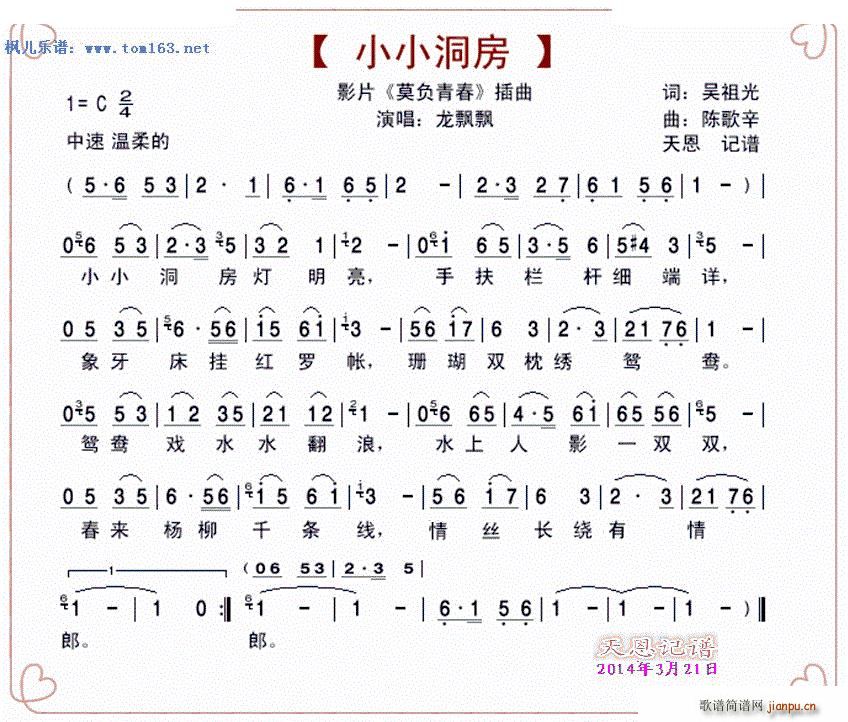 枫儿乐谱：www.tom163.net
【 小小洞房 】
影片《莫负青春》插曲
演唱：龙飘飘
1=C 2/4
中速 温柔的
词：吴祖光
曲：陈歌辛
天恩 记谱
( 5·6 5 3 | 2 · 1 | 6·1 6 5 | 2 - | 2·3 2 7 | 6 1 5 6 | 1 - ) |
0 5 6 5 3 | 2·3 3 5 | 3 2 1 | 1 2 - | 0 6 1 6 5 | 3·5 6 | 5 #4 3 | 3 5 - |
小小洞房灯明亮，手扶栏杆细端详，
0 5 3 5 | 5 6 · 5 6 | 1 5 6 1 | 1 3 - | 5 6 1 7 | 6 3 | 2 · 3 | 2 1 7 6 | 1 - |
象牙床挂红罗帐，珊瑚双枕绣鸳鸯。
0 3 5 5 3 | 1 2 3 5 | 2 1 1 2 | 2 1 - | 0 5 6 6 5 | 4·5 6 1 | 6 5 5 6 | 6 5 - |
鸳鸯戏水水翻浪，水上人影一双双，
0 5 3 5 | 6 · 5 6 | 6 1 5 6 1 | 1 3 - | 5 6 1 7 | 6 3 | 2 · 3 | 2 1 7 6 |
春来杨柳千条线，情丝长绕有情
1 ( 0 6 5 3 | 2·3 5 |
6 1 - | 1 0 :| 6 1 - | 1 - | 6·1 5 6 | 1 - | 1 - | 1 - ) ‖
郎。郎。
天恩记谱
2014年3月21日
歌谱简谱网 jianpu.cn